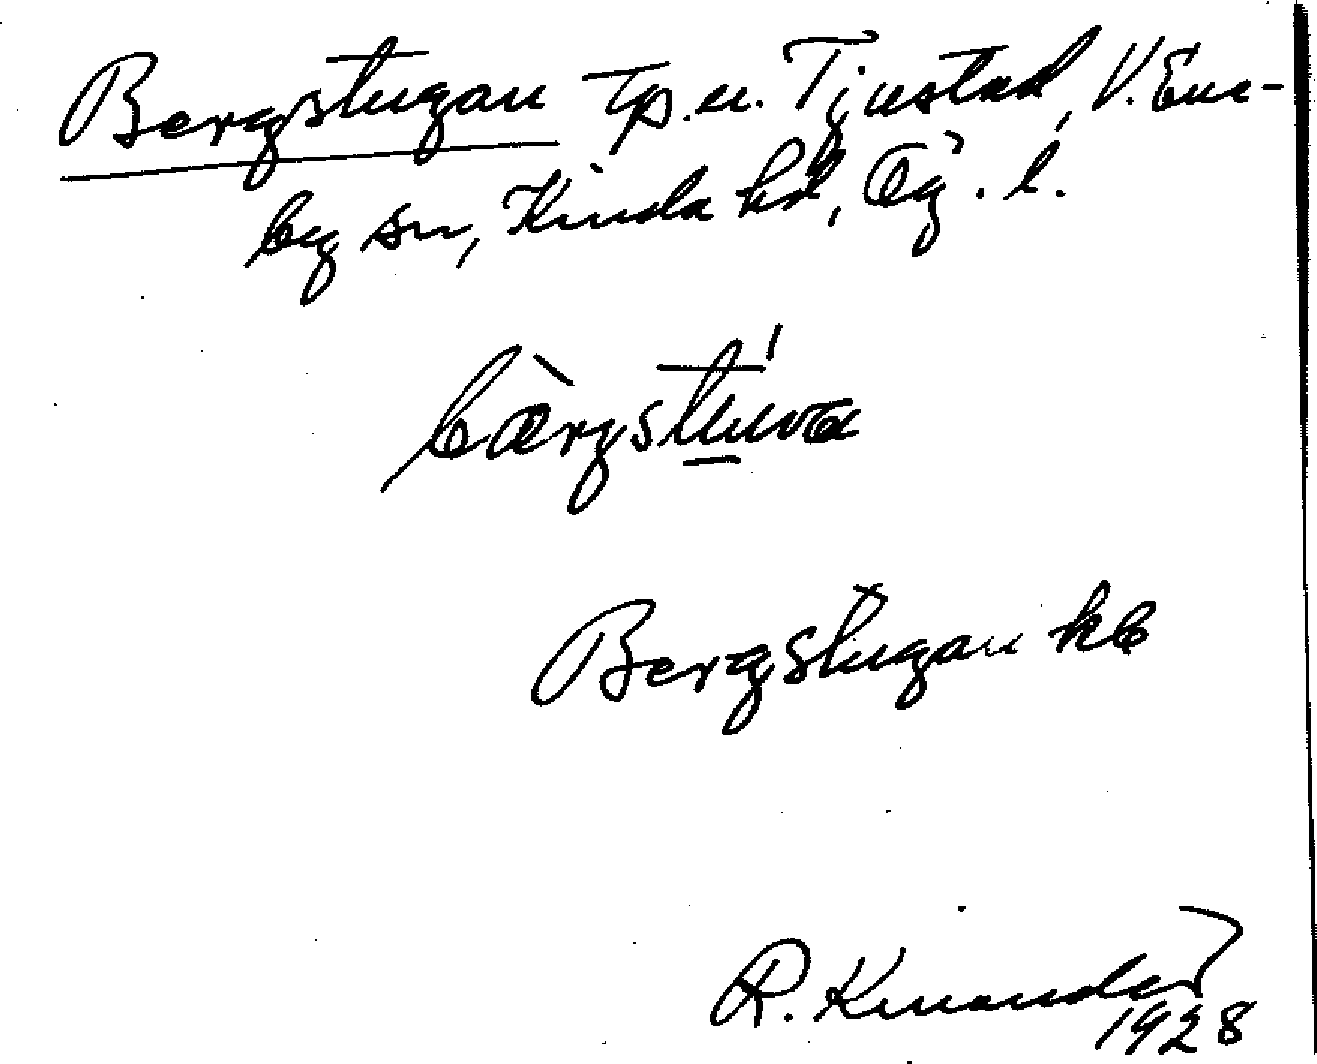 Bergstugan Tp. u. Tjustad, V. Ene-
by sn, Kinda hd, Ög. l.
bærgstuva
Bergstugan kb
R. Kinander
1928